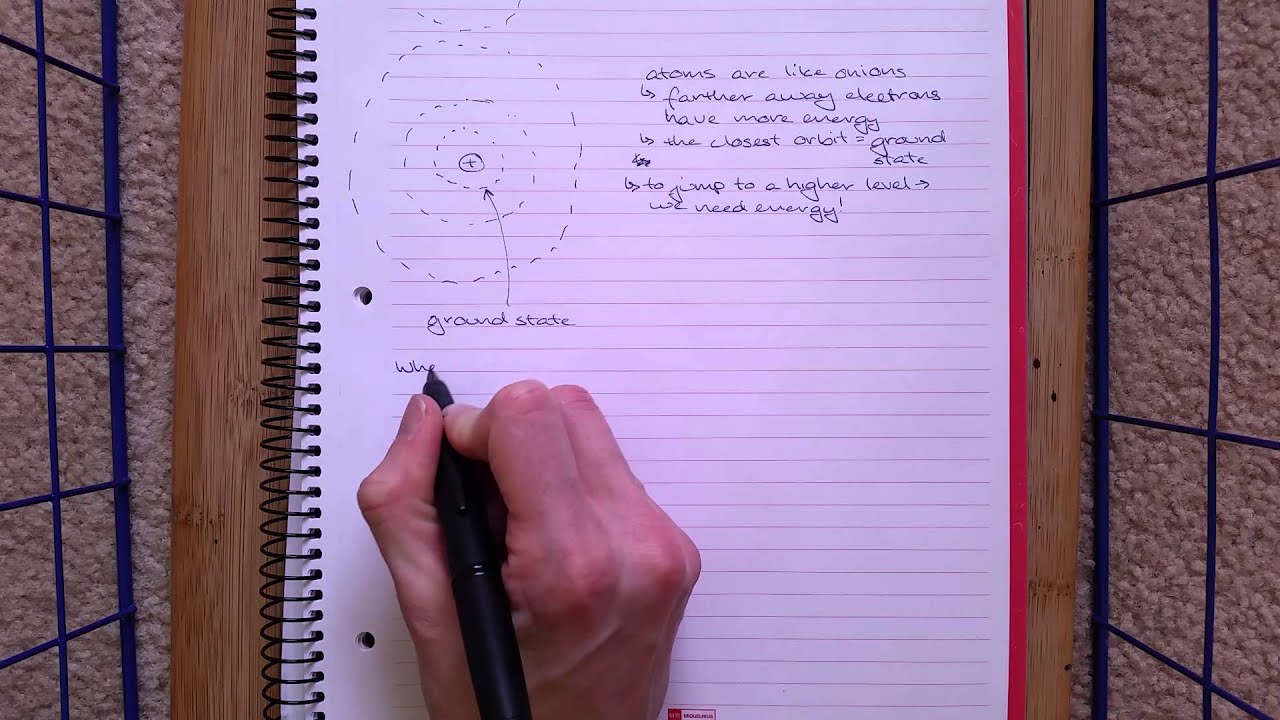 atoms are like onions
↳ farther away electrons
have more energy
↳ the closest orbit = ground
state
↳ to jump to a higher level →
we need energy!
+
ground state
whe
MIQUELRIUS